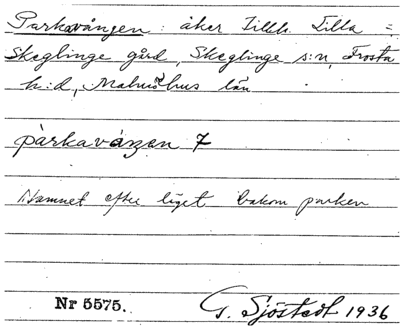 Parkavången: åker tillh. Lilla =
Skeglinge gård, Skeglinge s:n, Frosta
h:d, Malmöhus län
parkavåŋen 7
Namnet efter läget bakom parken
Nr 5575. G. Sjöstedt 1936